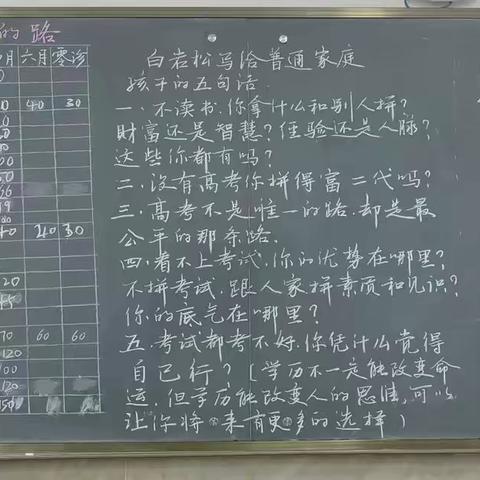 的路
月 六月 零诊
40 30
40 30
20
70 60 60
120
100
120
150
白岩松写给普通家庭
孩子的五句话.
一、不读书.你拿什么和别人拼?
财富还是智慧?经验还是人脉?
这些你都有吗?
二、没有高考你拼得富二代吗?
三、高考不是唯一的路.却是最
公平的那条路.
四.看不上考试.你的优势在哪里?
不拼考试.跟人家拼素质和见识?
你的底气在哪里?
五.考试都考不好.你凭什么觉得
自己行?[学历不一定能改变命
运.但学历能改变人的思维,可以
让你将来有更多的选择)